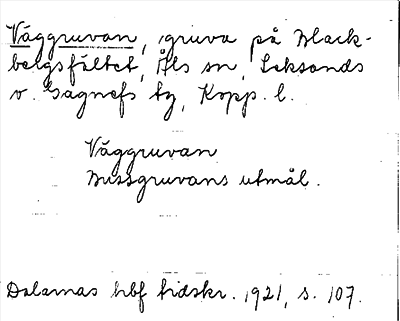 Väggruvan, gruva på Black-
bergsfältet, Åls sn, Leksands
o. Gagnefs tg, Kopp. l.
Väggruvan
Mussgruvans utmål.
Dalarnas hbf tidskr. 1921, s. 107.